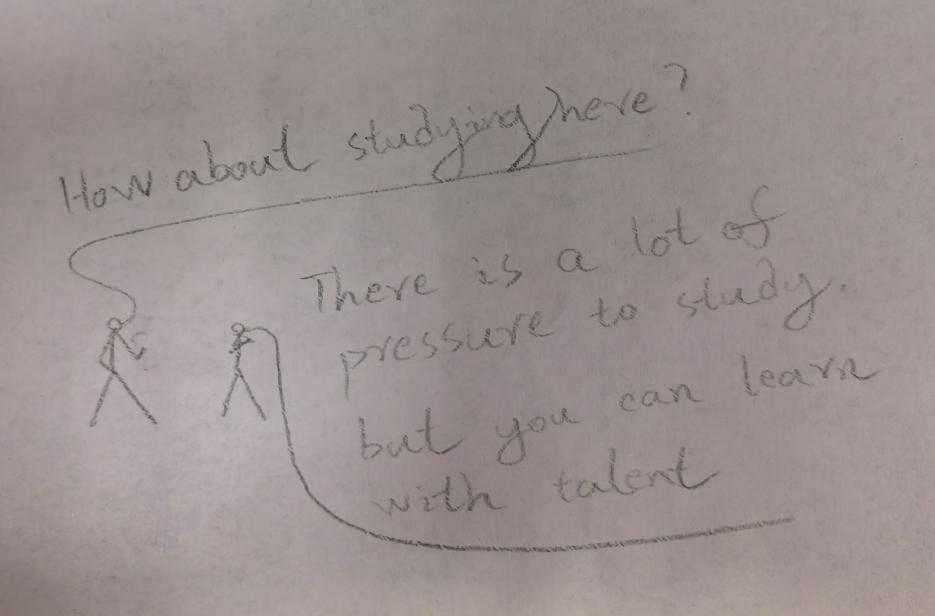 How about studying here?
There is a lot of
pressure to study.
but you can learn
with talent